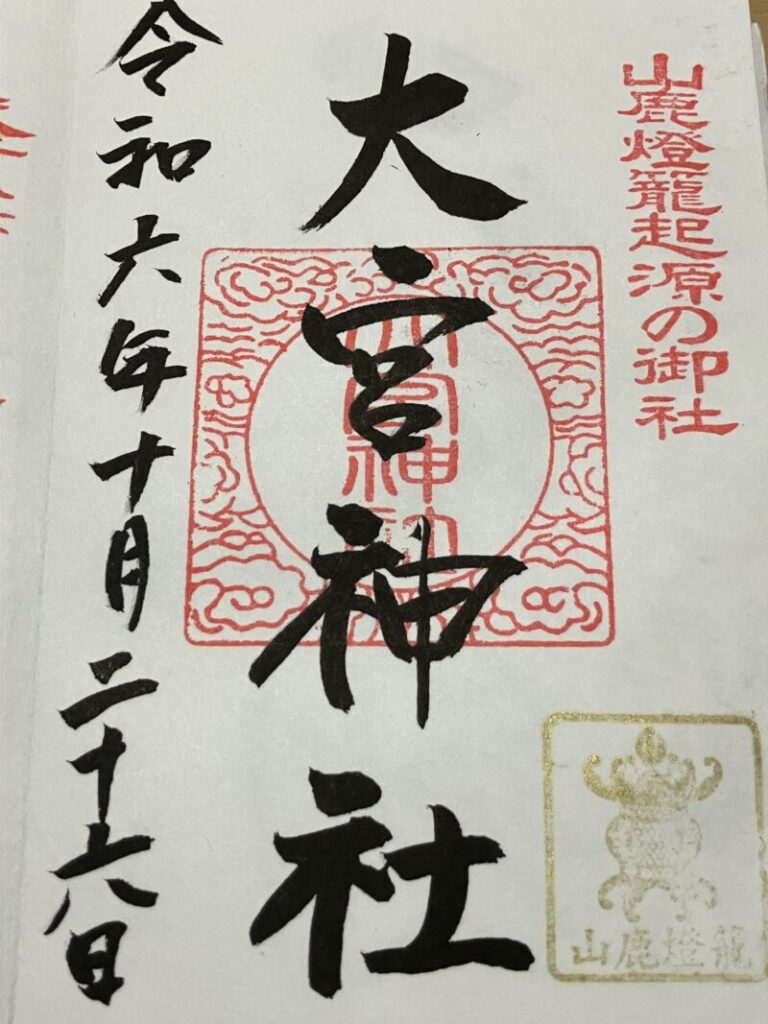 山鹿燈籠起源の御社
大宮神社
大宮神社
令和六年十月二十六日
山鹿燈籠